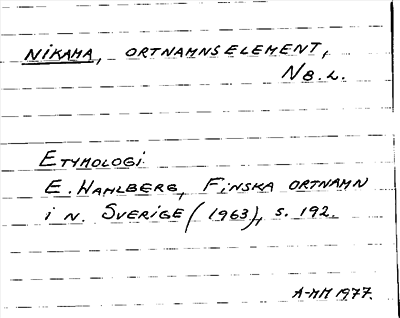 NIKAMA, ORTNAMNSELEMENT,
NB. L.
ETYMOLOGI
E. WAHLBERG, FINSKA ORTNAMN
I N. SVERIGE (1963), S. 192.
A-MM 1977.